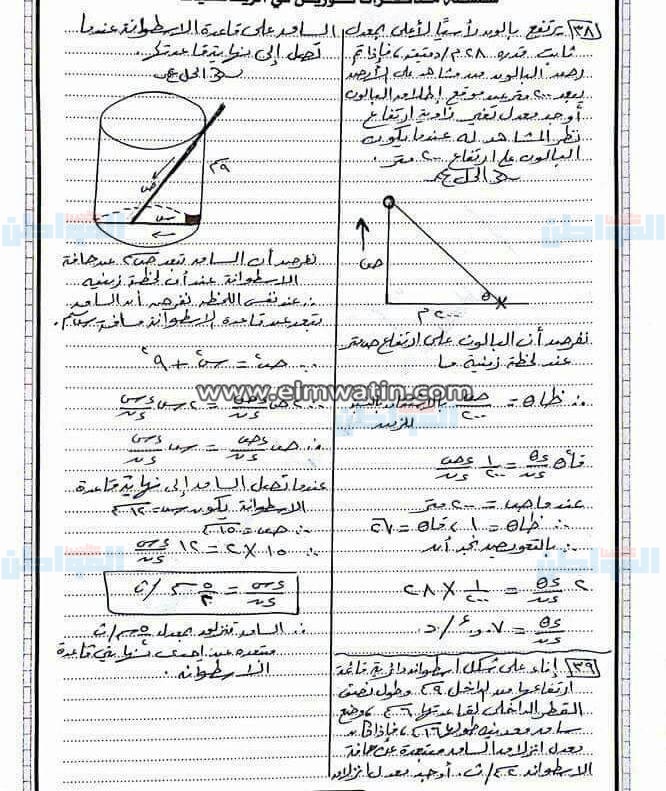 ٣٨ يرتفع بالون رأسيًا لأعلى بمعدل
ثابت قدره ٢٨ م/دقيقة ، فإذا تم
رصد البالون من مشاهد على الأرض
يبعد ٢٠٠ متر عن موقع إطلاق البالون
أوجد معدل تغير زاوية ارتفاع
نظر المشاهد له عندما يكون
البالون على ارتفاع ٢٠٠ متر .
الحل
ص
θ
٢٠٠ م
نفرض أن البالون على ارتفاع ص متر
عند لحظة زمنية ما
∴ ظا θ = ص/٢٠٠ بالاشتقاق بالنسبة
للزمن
قا²θ دθ/دن = ١/٢٠٠ دص/دن
عندما ص = ٢٠٠ متر
∴ ظا θ = ١ ، قا θ = √٢
∴ بالتعويض نجد أن
٢ دθ/دن = ١/٢٠٠ × ٢٨
دθ/دن = ٠٫٠٧ ء/د
٣٩ إناء على شكل اسطوانة دائرية قائمة
ارتفاعها من الداخل ٩سم وطول نصف
القطر الداخلى لقاعدتها ٦سم ، وضع
ساق معدنية طولها ١٦سم ، فإذا كان
معدل انزلاق الساق مبتعدة عن حافة
الاسطوانة ٢سم/ث . أوجد معدل انزلاق
الساق على قاعدة الاسطوانة عندما
تصل إلى نهاية قاعدتها .
الحل
٩سم
ص
س
نفرض أن الساق تبعد ص سم عن حافة
الاسطوانة عند أى لحظة زمنية
∴ عند نفس اللحظة نفرض أن الساق
تبعد عن قاعدة الاسطوانة مسافة س سم
∴ ص² = س² + ٩²
∴ ٢ ص دص/دن = ٢ س دس/دن
∴ ص دص/دن = س دس/دن
عندما تصل الساق إلى نهاية قاعدة
الاسطوانة يكون س = ١٢سم
∴ ص = ١٥سم
∴ ١٥ × ٢ = ١٢ دس/دن
دس/دن = ٥/٢ سم/ث
∴ الساق تنزلق بمعدل ٥/٢ سم/ث
مبتعدة عن إحدى نهايتى قاعدة
الاسطوانة .
www.elmwatin.com
المواطن
المواطن
المواطن
المواطن
المواطن